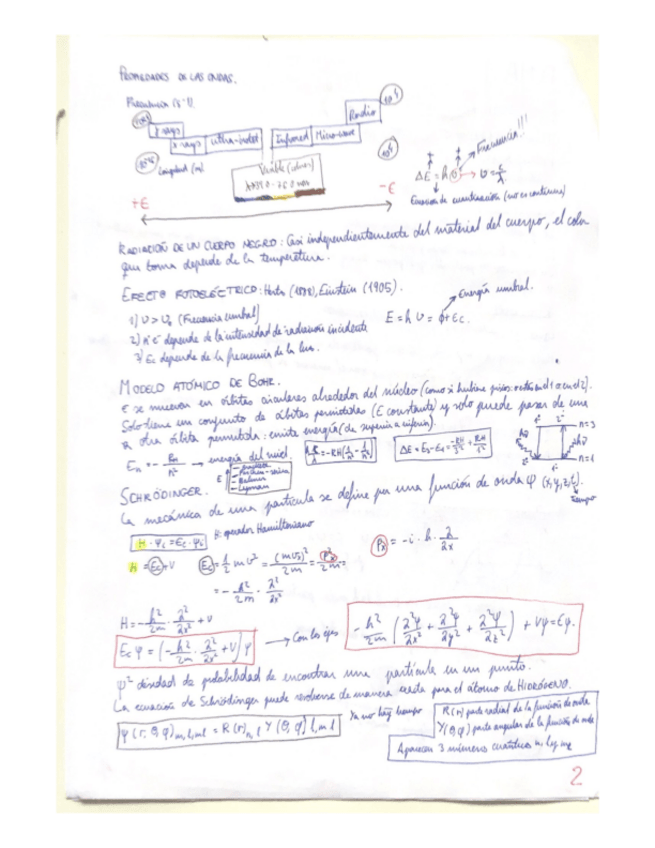 PROPIEDADES DE LAS ONDAS.
Frecuencia (s⁻¹).
γ rays
x rays
Ultra-violet
Infrared
Micro-wave
Radio
Longitud (m)
Visible (colores)
+E
-E
ΔE = h υ → υ = c/λ
Frecuencia!!!
Ecuación de cuantización (no es continua)
RADIACIÓN DE UN CUERPO NEGRO: Casi independientemente del material del cuerpo, el color
que toma depende de la temperatura.
EFECTO FOTOELÉCTRICO: Hertz (1888), Einstein (1905).
Energía umbral.
1) υ > υ₀ (Frecuencia umbral)
E = h υ = ϕ + Ec.
2) nº e⁻ depende de la intensidad de radiación incidente
3) Ec depende de la frecuencia de la luz.
MODELO ATÓMICO DE BOHR.
e⁻ se mueven en órbitas circulares alrededor del núcleo (como si hubiese pisos: estás en el 1 o en el 2).
Solo tiene un conjunto de órbitas permitidas (E constante) y solo puede pasar de una
a otra órbita permitida: emite energía (de superior a inferior).
n=3
n=1
→ energía del nivel.
- Balmer
- Lyman
SCHRÖDINGER.
La mecánica de una partícula se define por una función de onda φ (x,y,z,t).
tiempo
H · φi = Ei · φi
H: operador Hamiltoniano
H = Ec + V
Ec = 1/2 m v² = (mvx)²/2m = Px²/2m =
Px = -i · ħ · ∂/∂x
= - ħ²/2m · ∂²/∂x²
H = - ħ²/2m · ∂²/∂x² + V
Ec φ = (- ħ²/2m · ∂²/∂x² + V) φ
→ Con los ejes
- ħ²/2m (∂²φ/∂x² + ∂²φ/∂y² + ∂²φ/∂z²) + Vφ = Eφ.
φ² densidad de probabilidad de encontrar una partícula en un punto.
La ecuación de Schrödinger puede resolverse de manera exacta para el átomo de HIDRÓGENO.
Ya no hay tiempo
φ (r, θ, φ) n, l, ml = R(r) n, l Y (θ, φ) l, m l
R(r) parte radial de la función de onda
Y(θ,φ) parte angular de la función de onda
Aparecen 3 números cuánticos n, l y ml
2